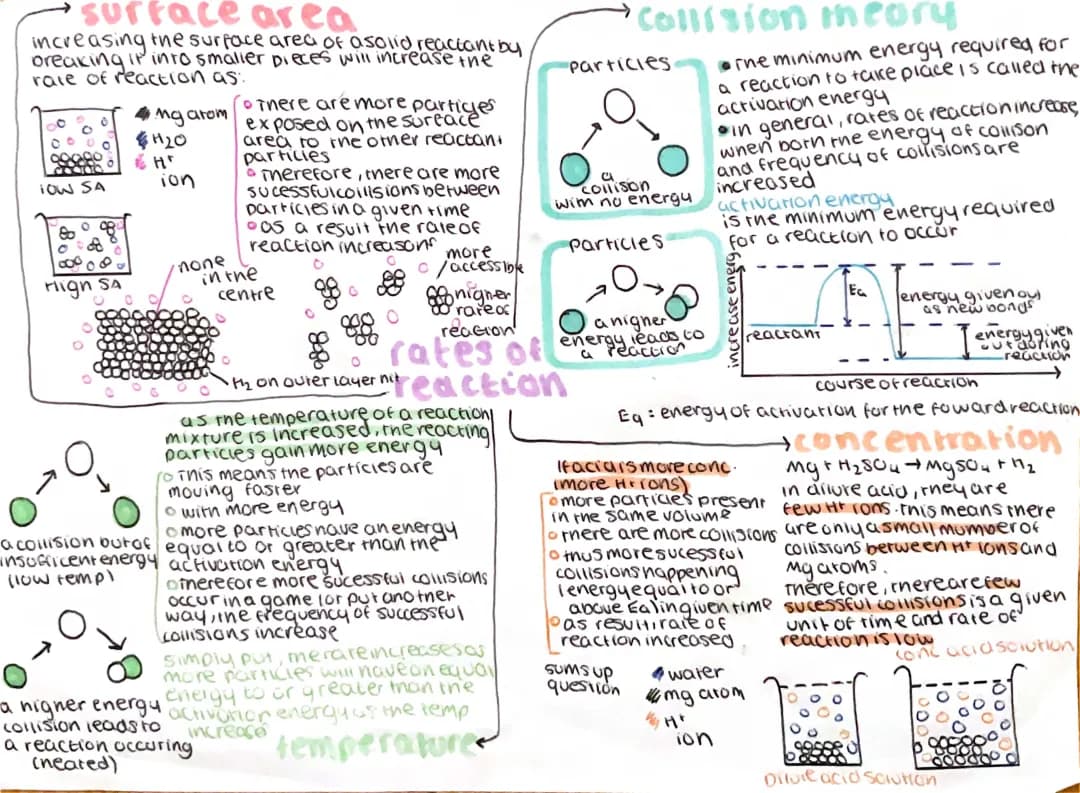 surface area
increasing the surface area of a solid reactant by
breaking it into smaller pieces will increase the
rate of reaction as:
Mg atom
H2O
H+
ion
low SA
High SA
there are more particles
exposed on the surface
area to the other reactant
particles
therefore, there are more
sucessful collisions between
particles in a given time
as a result the rate of
reaction increases
none
in the
centre
more
accessible
higher
rate of
reaction
H2 on outer layer hit
rates of
reaction
collision theory
particles
a
collison
with no energy
particles
a higher
energy leads to
a reaction
the minimum energy required for
a reaction to take place is called the
activation energy
in general, rates of reaction increase,
when both the energy of collison
and frequency of collisions are
increased
activation energy
is the minimum energy required
for a reaction to occur
increase energy
reactant
Ea
energy given out
as new bonds
energy given
out during
reaction
course of reaction
Ea : energy of activation for the foward reaction
as the temperature of a reaction
mixture is increased, the reacting
particles gain more energy
this means the particles are
moving faster
with more energy
more particles have an energy
equal to or greater than the
activation energy
therefore more sucessful collisions
occur in a game (or put another
way, the frequency of successful
collisions increase
simply put, the rate increases as
more particles will have an equal
energy to or greater than the
activation energy as the temp
increase
temperature
a collision but of
insufficent energy
(low temp)
a higher energy
collision leads to
a reaction occuring
(heated)
concentration
If acid is more conc.
(more H+ ions)
more particles present
in the same volume
there are more collisions
thus more sucessful
collisions happening
(energy equal to or
above Ea) in given time
as result, rate of
reaction increased.
Mg + H2SO4 → MgSO4 + H2
in dilute acid, they are
few H+ ions. this means there
are only a small number of
collisions between H+ ions and
Mg atoms.
therefore, there are few
sucessful collisions is a given
unit of time and rate of
reaction is low
sums up
question
water
mg atom
H+
ion
conc acid solution
Dilute acid solution